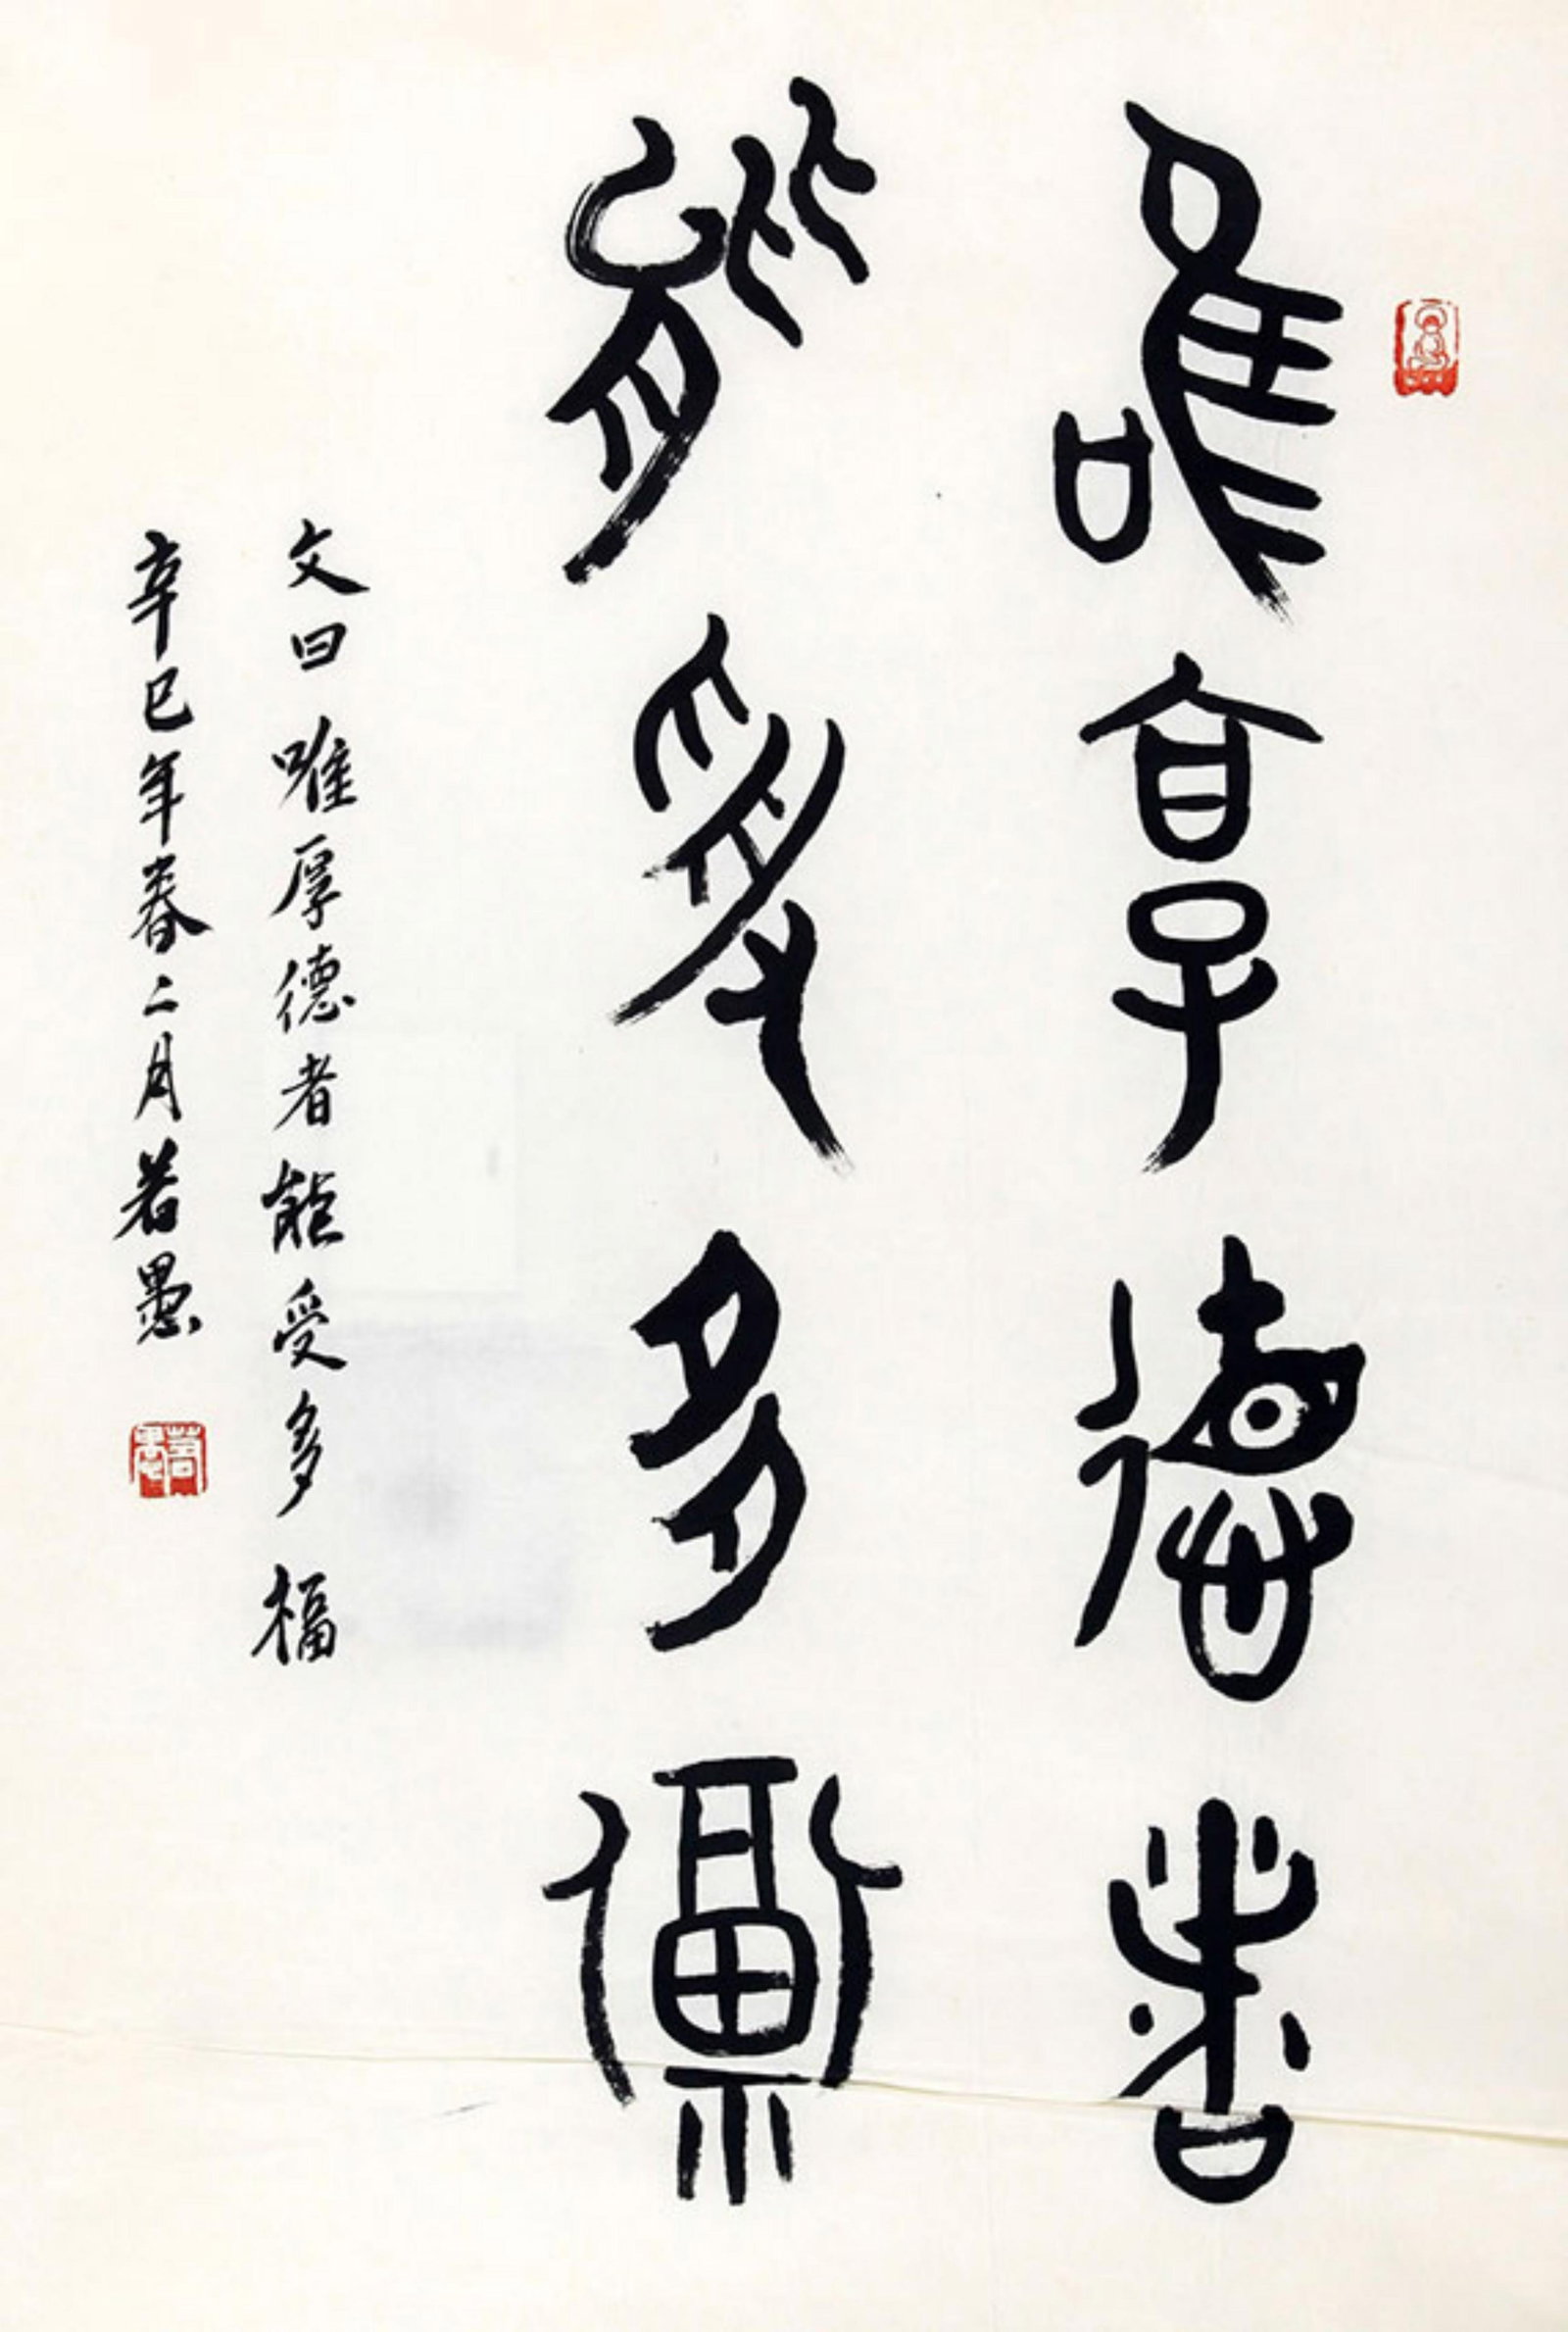 唯厚德者
能受多福
文曰唯厚德者能受多福
辛巳年春二月若愚
若愚